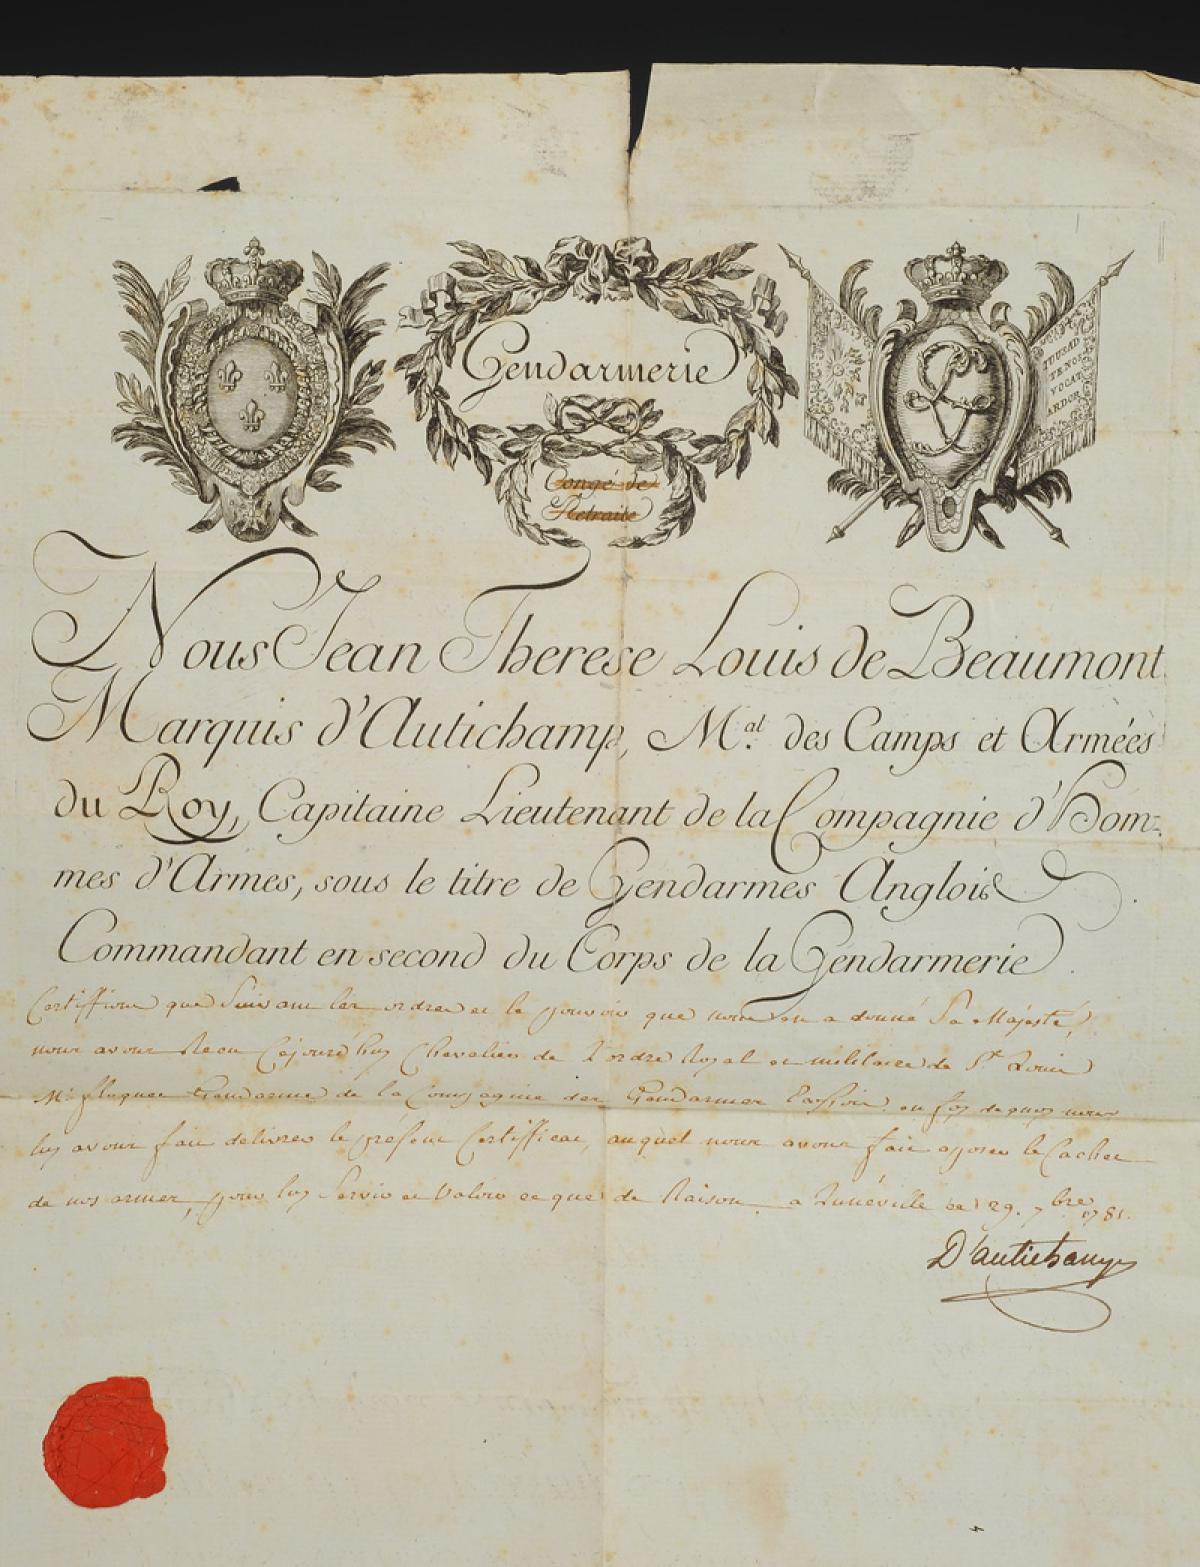 Gendarmerie
Congé de
Retraite
QUO JUBAD
TENOS
VOCAT
ARDOR
Nous Jean Therese Louis de Beaumont
Marquis d'Autichamp, M.al des Camps et Armées
du Roy, Capitaine Lieutenant de la Compagnie d'Hom=
mes d'Armes, sous le titre de Gendarmes Anglois
Commandant en second du Corps de la Gendarmerie.
Certiffions que Suivant les ordres et le pouvoir que nous en a donné Sa Majesté,
nous avons Recu Cejourd'huy Chevalier de L'ordre Royal et militaire de St Louis
Mr floquet Gendarme de la Compagnie des Gendarmes en foy de quoy nous
luy avons fait delivrer le present Certifficat, auquel nous avons fait aposer le Cachet
de nos armes, pour luy Servir et Valoir ce que de Raison. a Lunéville ce 29. 7bre 1781.
D'autichamp